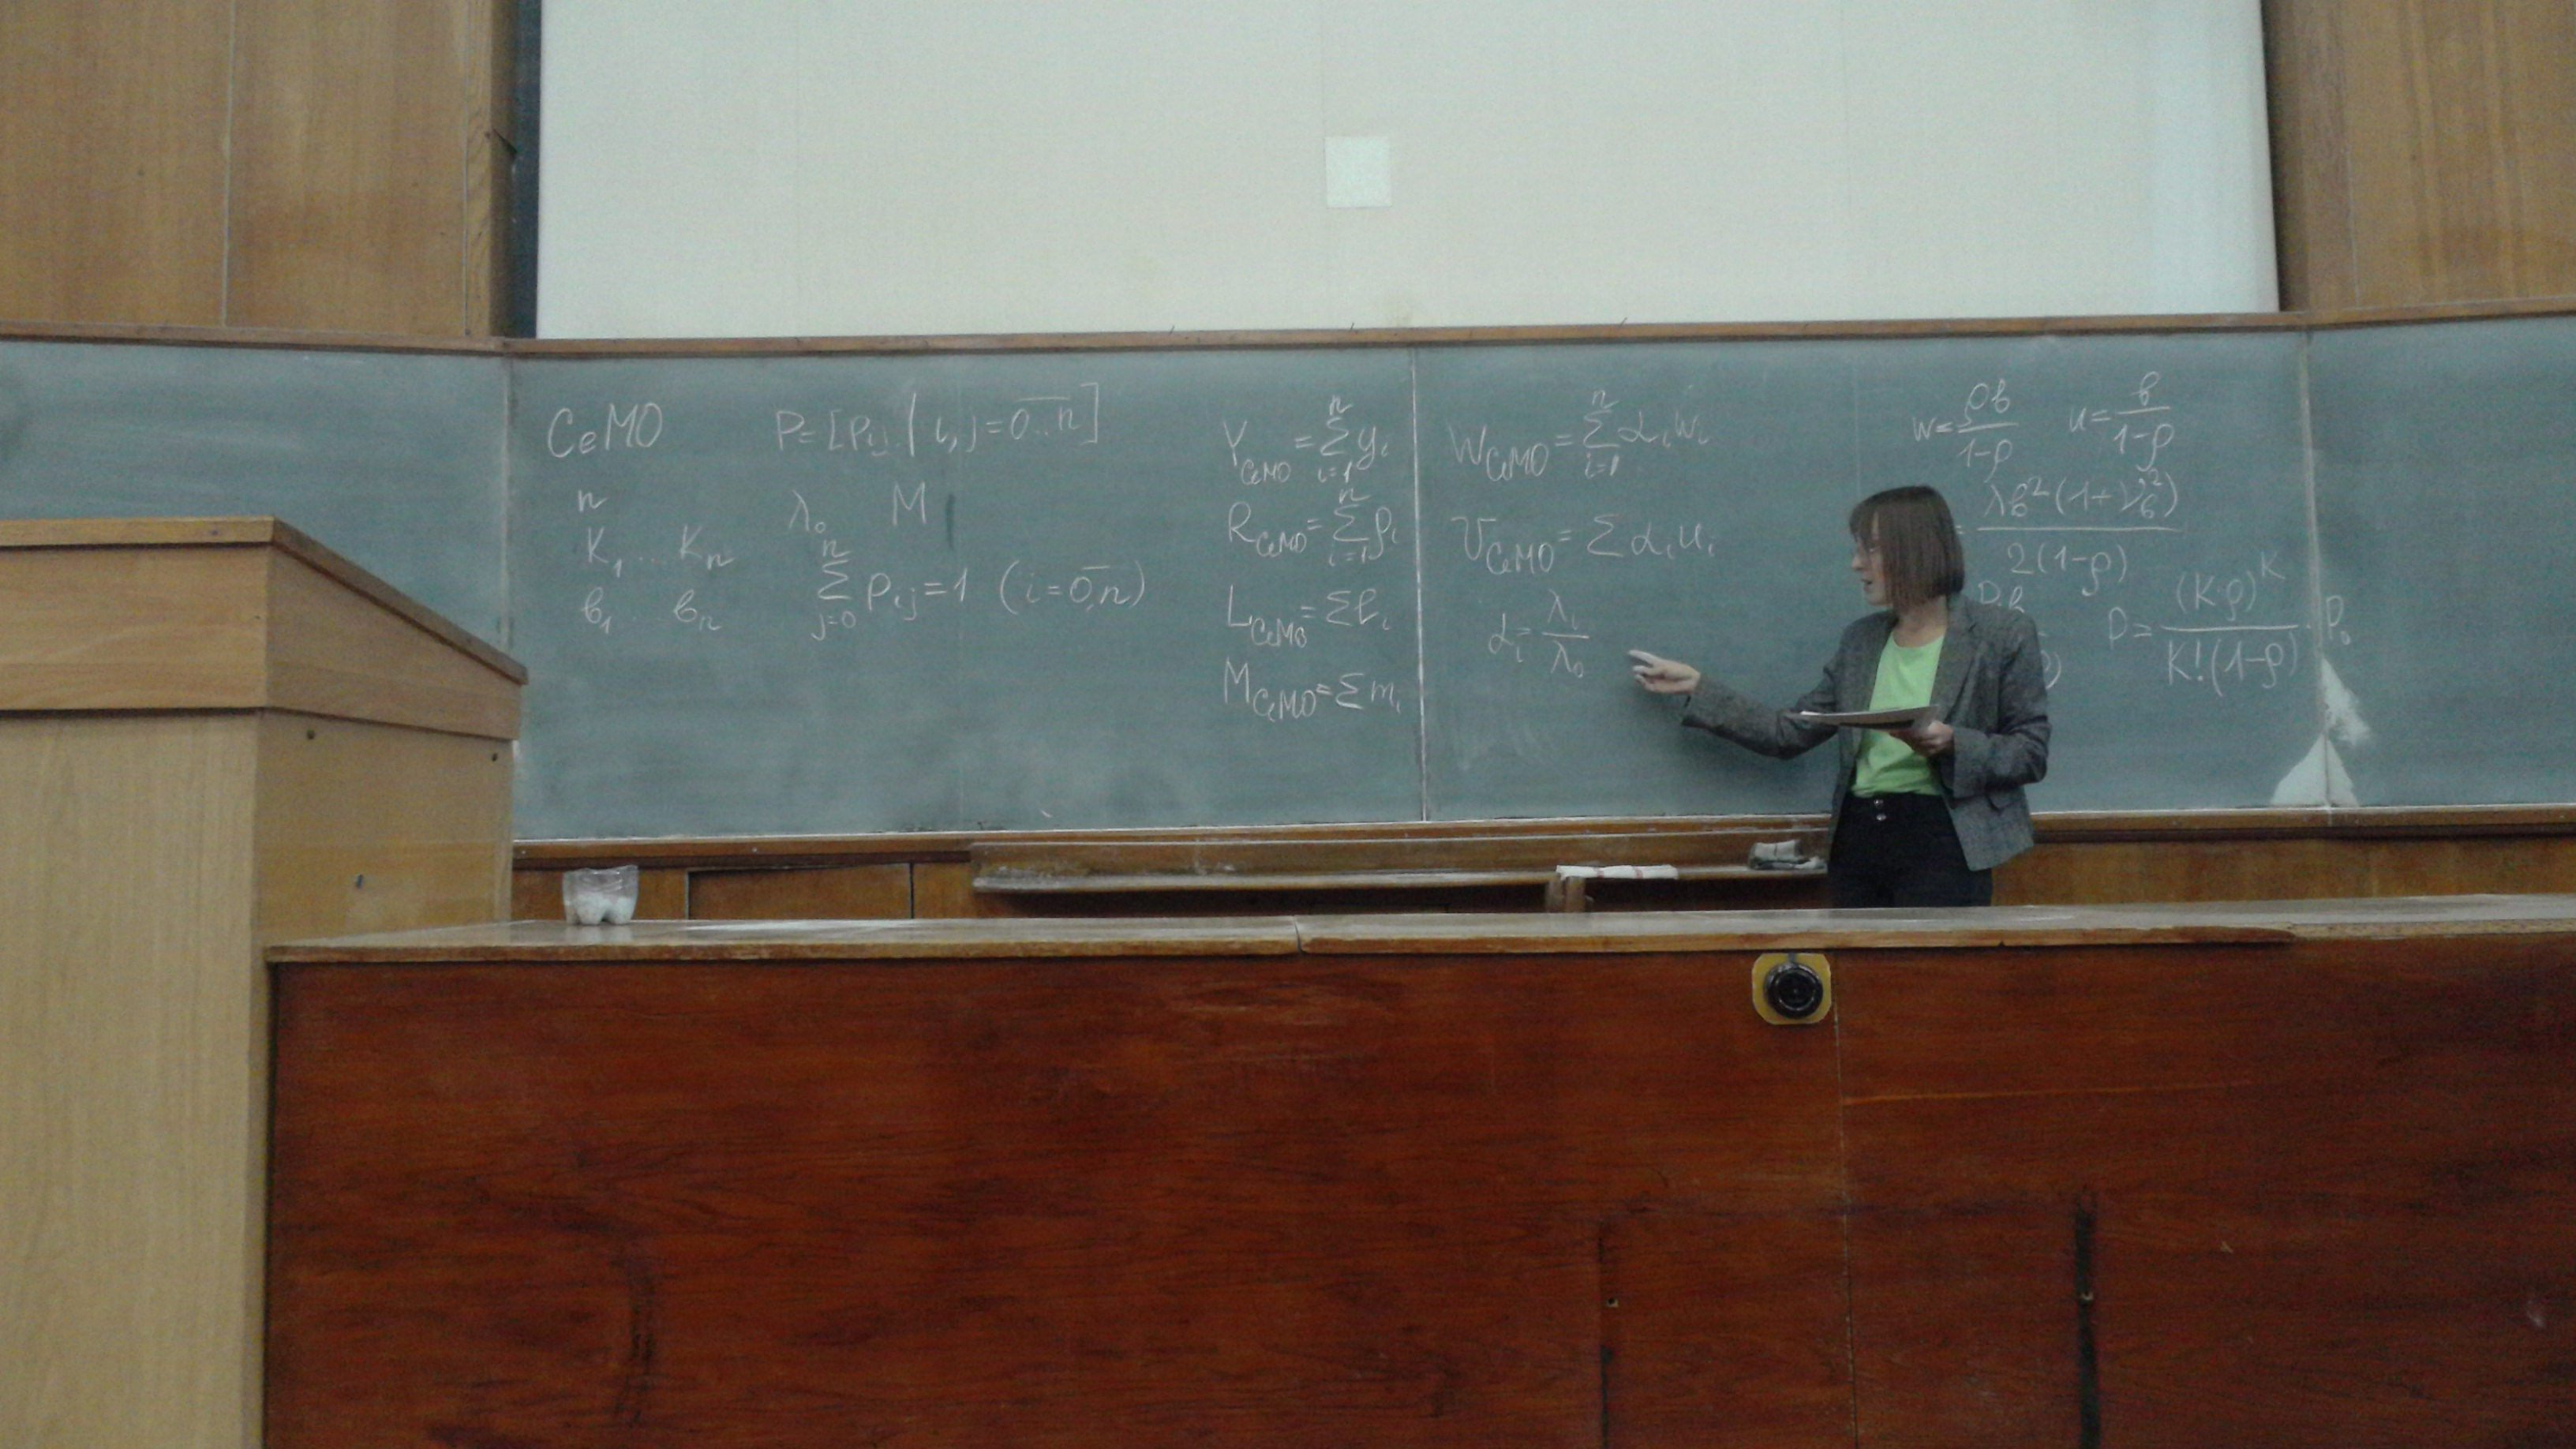 СеМО
n
K₁ ... Kₙ
в₁ ... вₙ
P=[Pᵢⱼ | i,j=0..n]
λ₀ M
∑ⱼ₌₀ⁿ pᵢⱼ=1 (i=0,n)
Y_СеМО = ∑ᵢ₌₁ⁿ yᵢ
R_СеМО = ∑ᵢ₌₁ⁿ ρᵢ
L_СеМО = ∑ℓᵢ
M_СеМО = ∑mᵢ
W_СеМО = ∑ᵢ₌₁ⁿ αᵢwᵢ
U_СеМО = ∑αᵢuᵢ
αᵢ = λᵢ/λ₀
w = ρв/(1-ρ) u = в/(1-ρ)
= λв²(1+ν_в²)/2(1-ρ)
P = (Kρ)^K/K!(1-ρ) · P₀